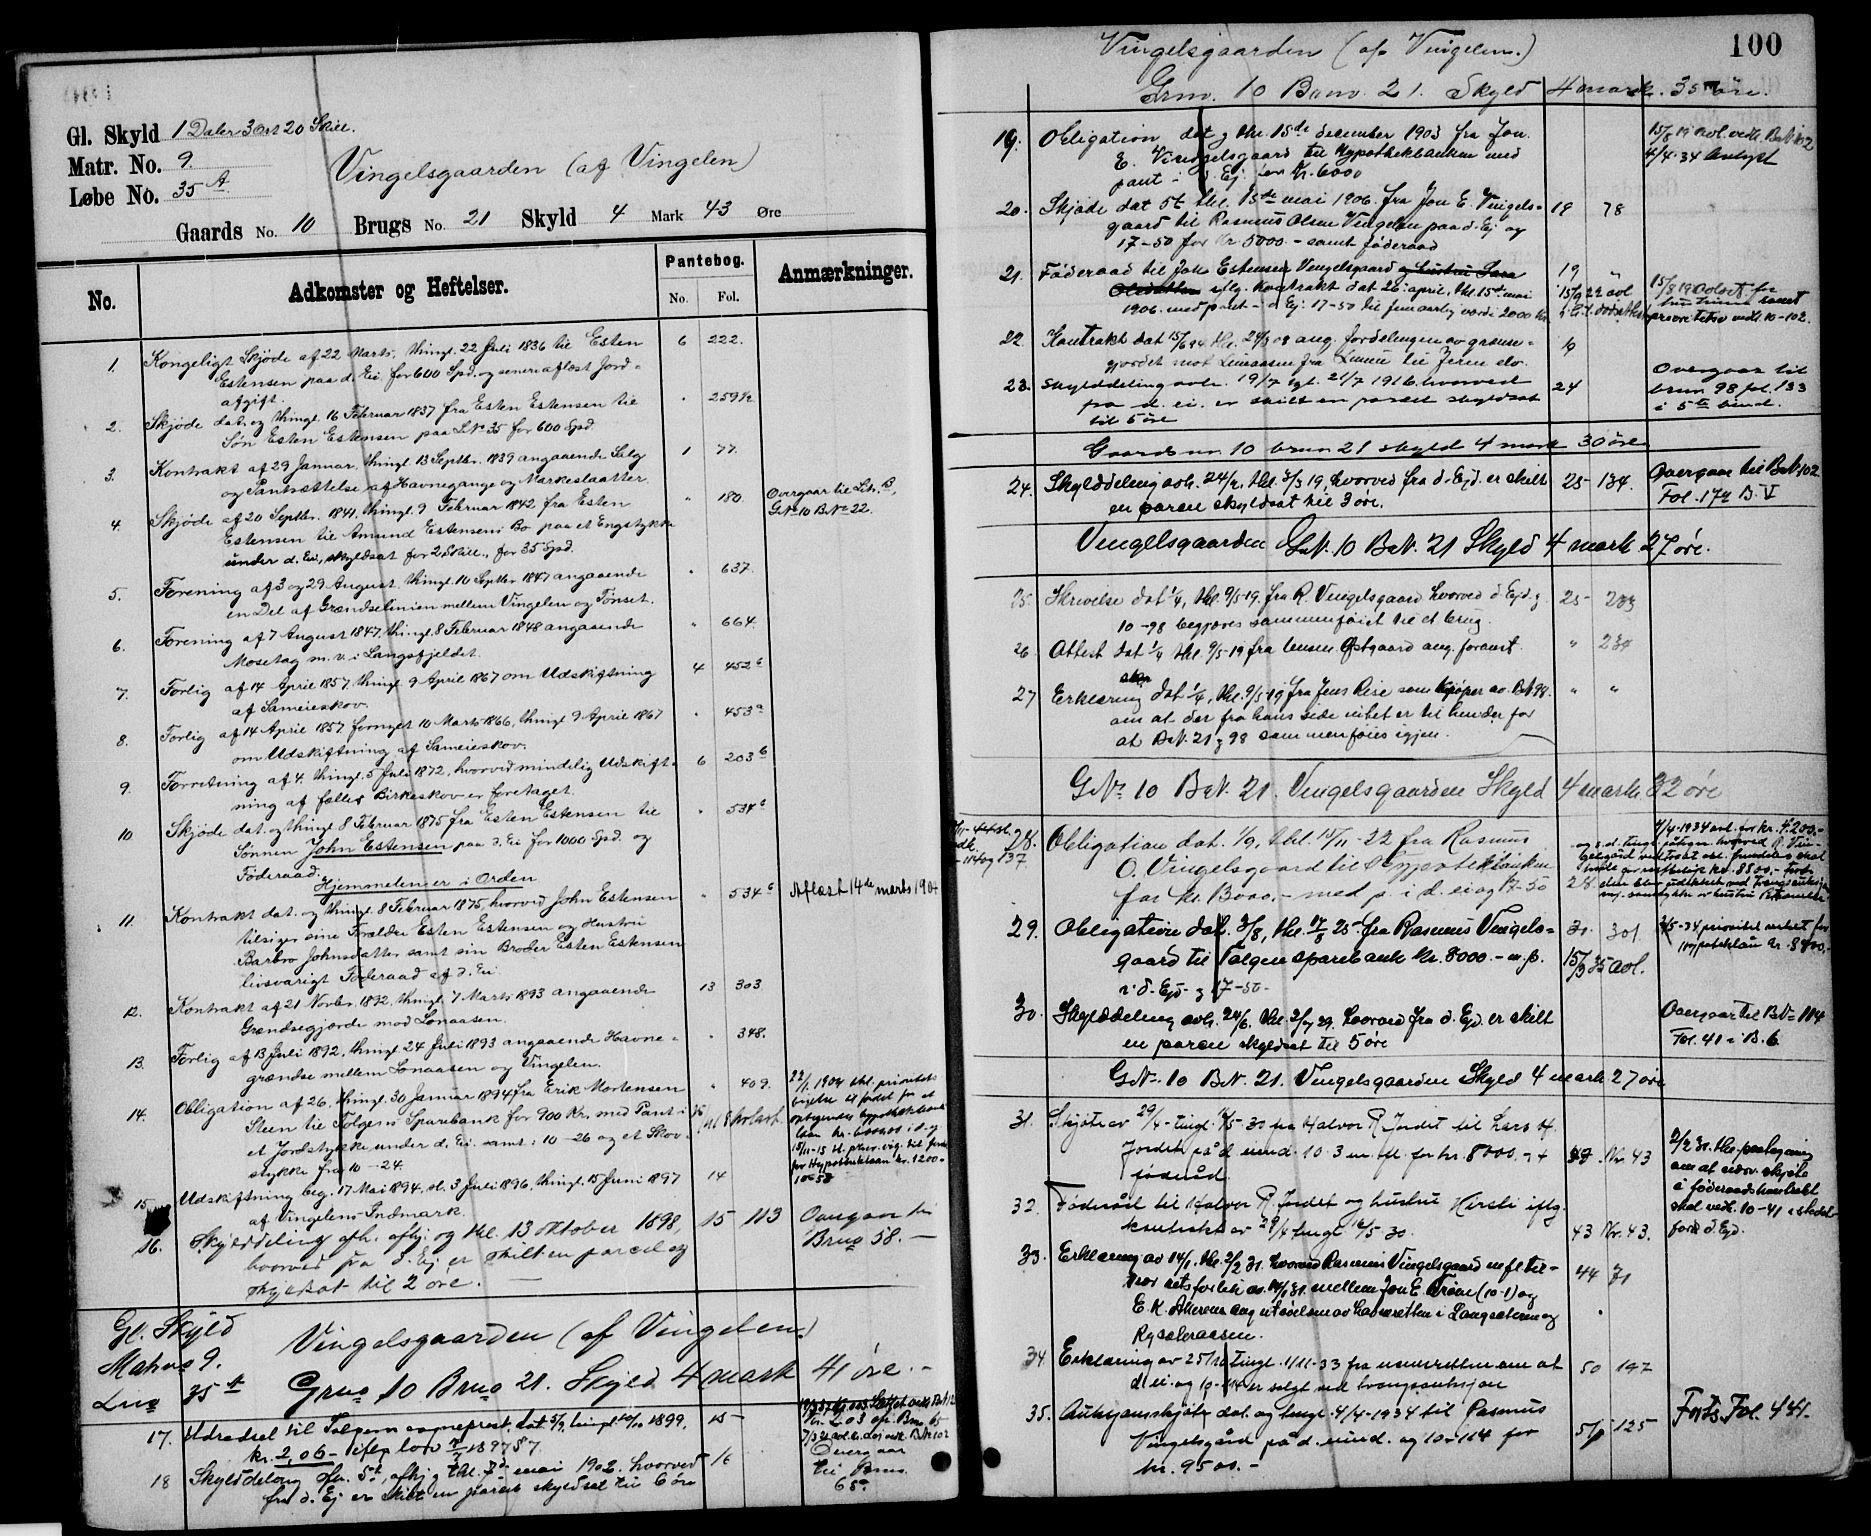 Gl. Skyld 1 Daler 3 Ort 20 Skill.
Matr. No. 9.
Løbe No. 35 A.
Vingelsgaarden (af Vingelen)
Gaards No. 10 Brugs No. 21 Skyld 4 Mark 43 Øre
No. Adkomster og Heftelser. Pantebog. No. Fol. Anmærkninger.
1. Kongeligt Skjøde af 22 Marts, thingl. 22 Juli 1836 til Esten 6 222.
Estensen paa d. Ei. for 600 Spd. og senere aflæst Jord-
afgift.
2. Skjøde dat. og thingl. 16 Februar 1837 fra Esten Estensen til " 259
Søn Esten Estensen paa LNo 35 for 600 Spd.
3. Kontrakt af 29 Januar, thingl. 13 Septbr. 1839 angaaende Salg 1 77.
og Pantsættelse af Havnegange og Markeslaatter.
4. Skjøde af 20 Septbr. 1841, thingl. 9 Februar 1842 fra Esten " 180. Overgaar til Litr. B,
Estensen til Amund Estensens Bo paa et Engstykke GNo 10 BNo 22.
under d. Ei, skyldsat for 2 Skill., for 35 Spd.
5. Forening af 3 og 29 August, thingl. 10 Septbr 1847 angaaende " 637.
en Del af Grændselinien mellem Vingelen og Tønset.
6. Forening af 7 August 1847, thingl. 8 Februar 1848 angaaende " 664.
Mosetag m.v. i Langsfjeldet.
7. Forlig af 14 April 1857, thingl. 9 April 1867 om Udskiftning 4 452 b
af Sameieskov.
8. Forlig af 14 April 1857 fornyet 10 Marts 1866, thingl. 9 April 1867 " 453 a
om Udskiftning af Sameieskov.
9. Forretning af 4, thingl. 5 Juli 1872, hvorved mindelig Udskift- 6 203 b
ning af fælles Birkeskov er foretaget.
10. Skjøde dat. og thingl. 8 Februar 1875 fra Esten Estensen til " 534 b
Sønnen John Estensen paa d. Ei for 1000 Spd. og
Føderaad.
Hjemmelen er i Orden
11. Kontrakt dat. og thingl. 8 Februar 1875, hvorved John Estensen " 534 b Aflæst 14de marts 1904
tilsiger sine Forældre Esten Estensen og Hustru
Barbro Johnsdatter samt sin Broder Esten Estensen
livsvarigt Føderaad af d. Ei.
12. Kontrakt af 21 Novbr. 1892, thingl. 7 Marts 1893 angaaende 13 303
Grændsegjærde mod Lonaasen.
13. Forlig af 13 Juli 1892, thingl. 24 Juli 1893 angaaende Havne- " 348.
grændse mellem Lonaasen og Vingelen.
14. Obligation af 26, thingl. 30 Januar 1894 fra Erik Mortensen " 409. 22/1 1904 thl. prioritets
Steen til Tolgens Sparebank for 900 Kr. med Pant i
et Jordstykke under d. Ei. samt i 10-26 og et Skov-
stykke fra 10-24.
15. Udskiftning beg. 17 Mai 1894, sl. 3 Juli 1896, thingl. 15 Juni 1897 14
af Vingelens Indmark.
16. Skylddeling afh. afhj. og thl. 13 oktober 1898, 15 113 Overgaar til
hvorved fra d. Ej er skilt en parcel og Brno 58. —
skyldsat til 2 øre. —
Gl. Skyld
Matrno 9. Vingelsgaarden (af Vingelen)
Lno 35 A Grno 10 Brno 21. Skyld 4 mark 41 øre. -
17. Udredsel til Tolgen sogneprest, dat. 5/9, tingl 10/10 1899, 15
kr. 2,06 - ifølge lov 1897 § 7.
18 Skylddeling afh. 5te, afhj. og thl. 7de mai 1902, hvorved 16 Overgaar
fra d. Ej er skilt en parcel skyldsat til 6 øre til Brno 65.
100
Vingelsgaarden (af Vingelen.)
Grno. 10 Brno. 21. Skyld 4 mark. 35 øre.
19. Obligation dat. og thl. 15de december 1903 fra Jon 15/8 19 avl. vedk. BNo 102
E. Vingelsgaard til Hypothekbanken med 4/4-34 Avlyst
pant i d. Ej for kr. 6000
20. Skjøde dat 5te thl. 15de mai 1906 fra Jon E. Vingels- 19 78
gaard til Rasmus Olsen Vingelen paa d. Ej og
17-50 for kr. 5000.- samt føderaad
21. Føderaad til Jon Estensen Vingelsgaard og hustru 19 "
iflg. kontrakt dat 26 april, thl. 15de mai 15/9 22 avl
1906. med pant i d. Ej. 17-50 til femaarlig værdi 2000 kr.
22. Kontrakt dat 15/6 94 thl. 24/3 08 ang. fordelingen av grænse- 19
gjerdet mot Lonaasen fra Lonu til Jern elv.
23. Skylddeling avh. 19/7 tgl. 21/7 1916. hvorved 24 Overgaar til
fra d. ei. er skilt en parcel skyldsat brun 98 fol. 133
til 5 øre i 5te bind.
Gaards nr 10 brun 21 skyld 4 mark 30 øre
24. Skylddeling avh. 24/2, thl. 3/3 19, hvorved fra d. Ejd. er skilt 25 134. Overgaar til BNo 102
en parcel skyldsat til 3 øre. Fol. 172 B. V
Vingelsgaarden GNo. 10 BNo. 21 Skyld 4 mark 27 øre.
25. Skrivelse dat 1/4, thl. 9/5-19, fra R. Vingelsgaard hvorved d. Ejd. og 25 233
10-98 begjæres sammenføiet til et brug.
26. Attest dat 1/4 thl. 9/5-19 fra lensm. Østgaard ang. foranst. " 234
27 Erklæring dat 1/4, thl. 9/5-19 fra Jens Rise som kjøper av BNo 98. " "
om at der fra hans side intet er til hinder for
at BNo. 21 og 98 sammenføies igjen.
GNo 10 BNo. 21. Vingelsgaarden Skyld 4 mark 32 øre
28. Obligation dat. 1/9, thl. 14/11-22 fra Rasmus
O. Vingelsgaard til Hypotekbanken
for kr. 8000.- med p. i d. ei og 17-50 28
29. Obligation dat. 3/8, thl. 17/8 25 fra Rasmus Vingels- 31 301.
gaard til Tolgen sparebank kr. 8000.- m. p. 15/9 35 avl.
i d. Ejd. og 17-50-
30. Skylddeling avh. 24/6, thl. 2/7 29. hvorved fra d. Ejd. er skilt Overgaar til BNo 114
en parcel skyldsat til 5 øre Fol. 41 i B. 6
GNo. 10 BNo. 21. Vingelsgaarden Skyld 4 mark 27 øre
31. Skjøte av 29/4 - tingl. 14/5-30 fra Halvor R Jordet til Lars H. Nr. 43
Jordet på d. eiend. 10-3 m. fl. for kr. 8000.- +
føderåd.
32. Føderåd til Halvor R. Jordet og hustru Kirsti iflg. 43 Nr. 43.
kontrakt av 29/4 tingl 14/5-30.
33. Erklæring av 14/1, thl. 2/2 31. hvorved Rasmus Vingelsgaard m fl til- 44 71
trær rettsforlik av 14/1 31. mellem Jon E. Trøen (10-1) og
34. Erklæring av 25/10 tingl. 1/11-33 fra namsretten om at 50 147
d. ei. og 10-114 er solgt ved tvangsauksjon
35. Auksjonsskjøte dat. og tingl. 4/4-1934 til Rasmus 51 125 Forts. Fol. 441.
Vingelsgård på d. eiend. og 10-114 for
kr. 9500.-